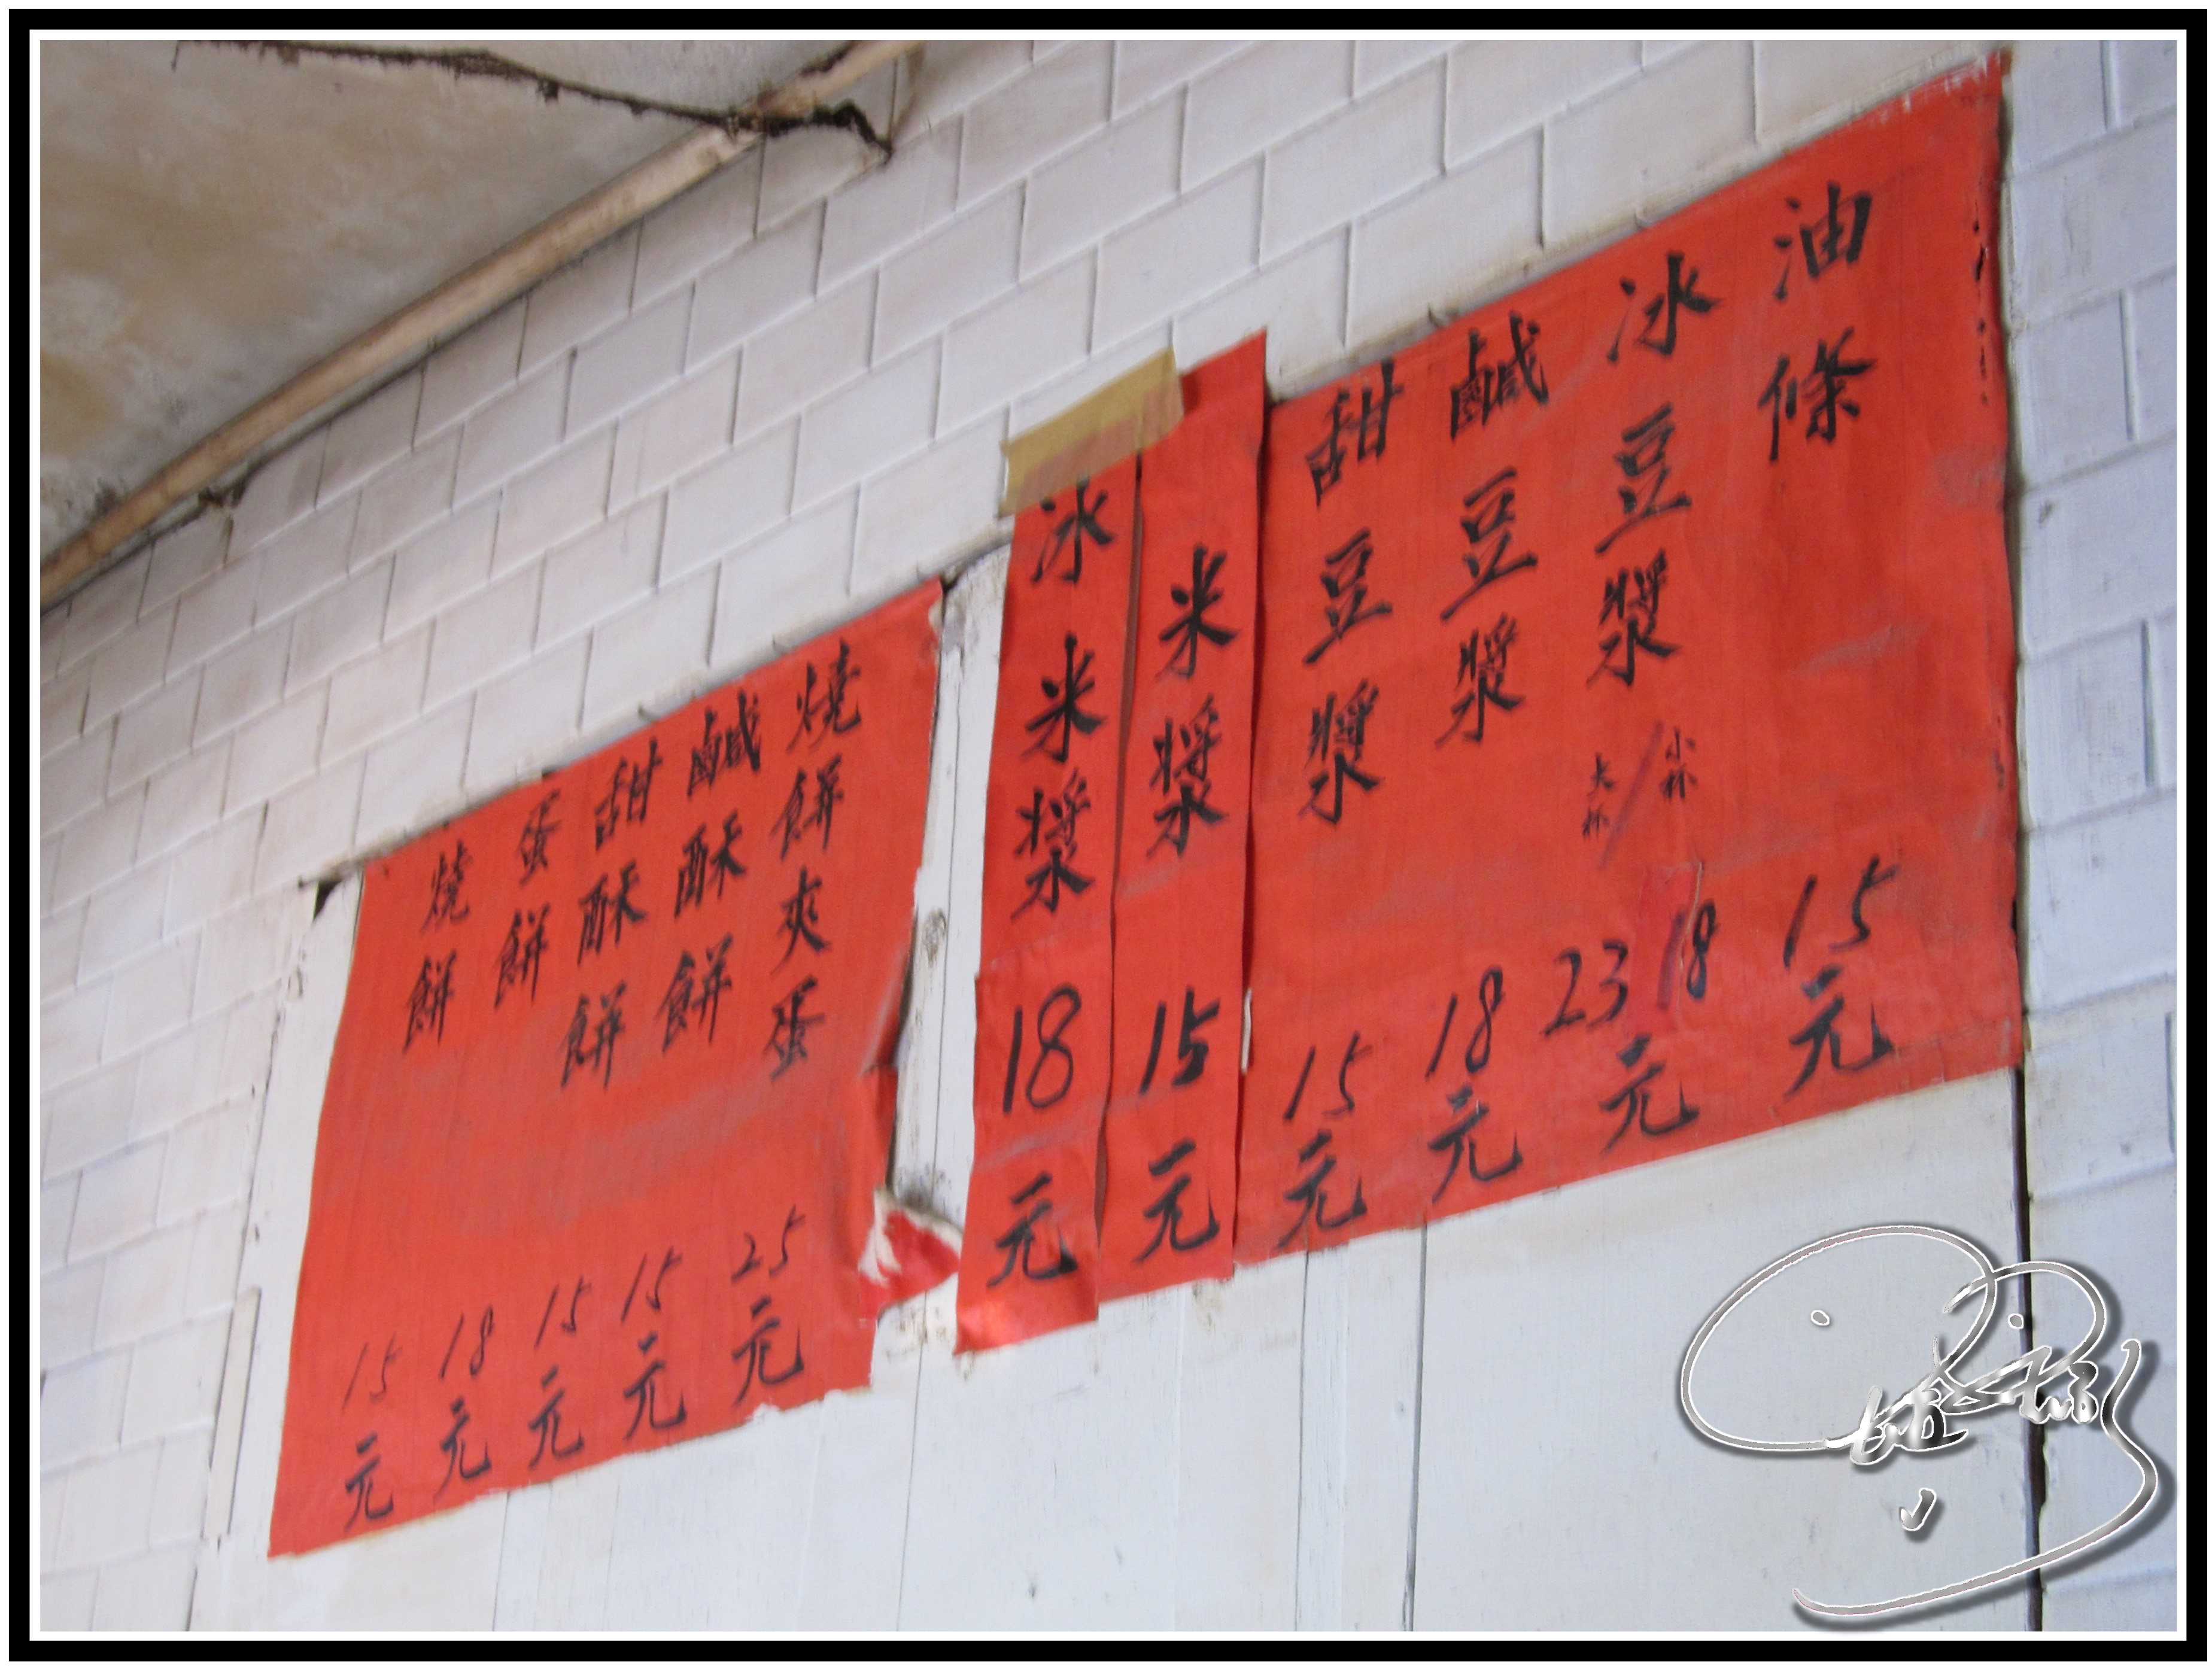 油條 15元
冰豆漿 小杯/大杯 18/23元
鹹豆漿 18元
甜豆漿 15元
米漿 15元
冰米漿 18元
燒餅夾蛋 25元
鹹酥餅 15元
甜酥餅 15元
蛋餅 18元
燒餅 15元